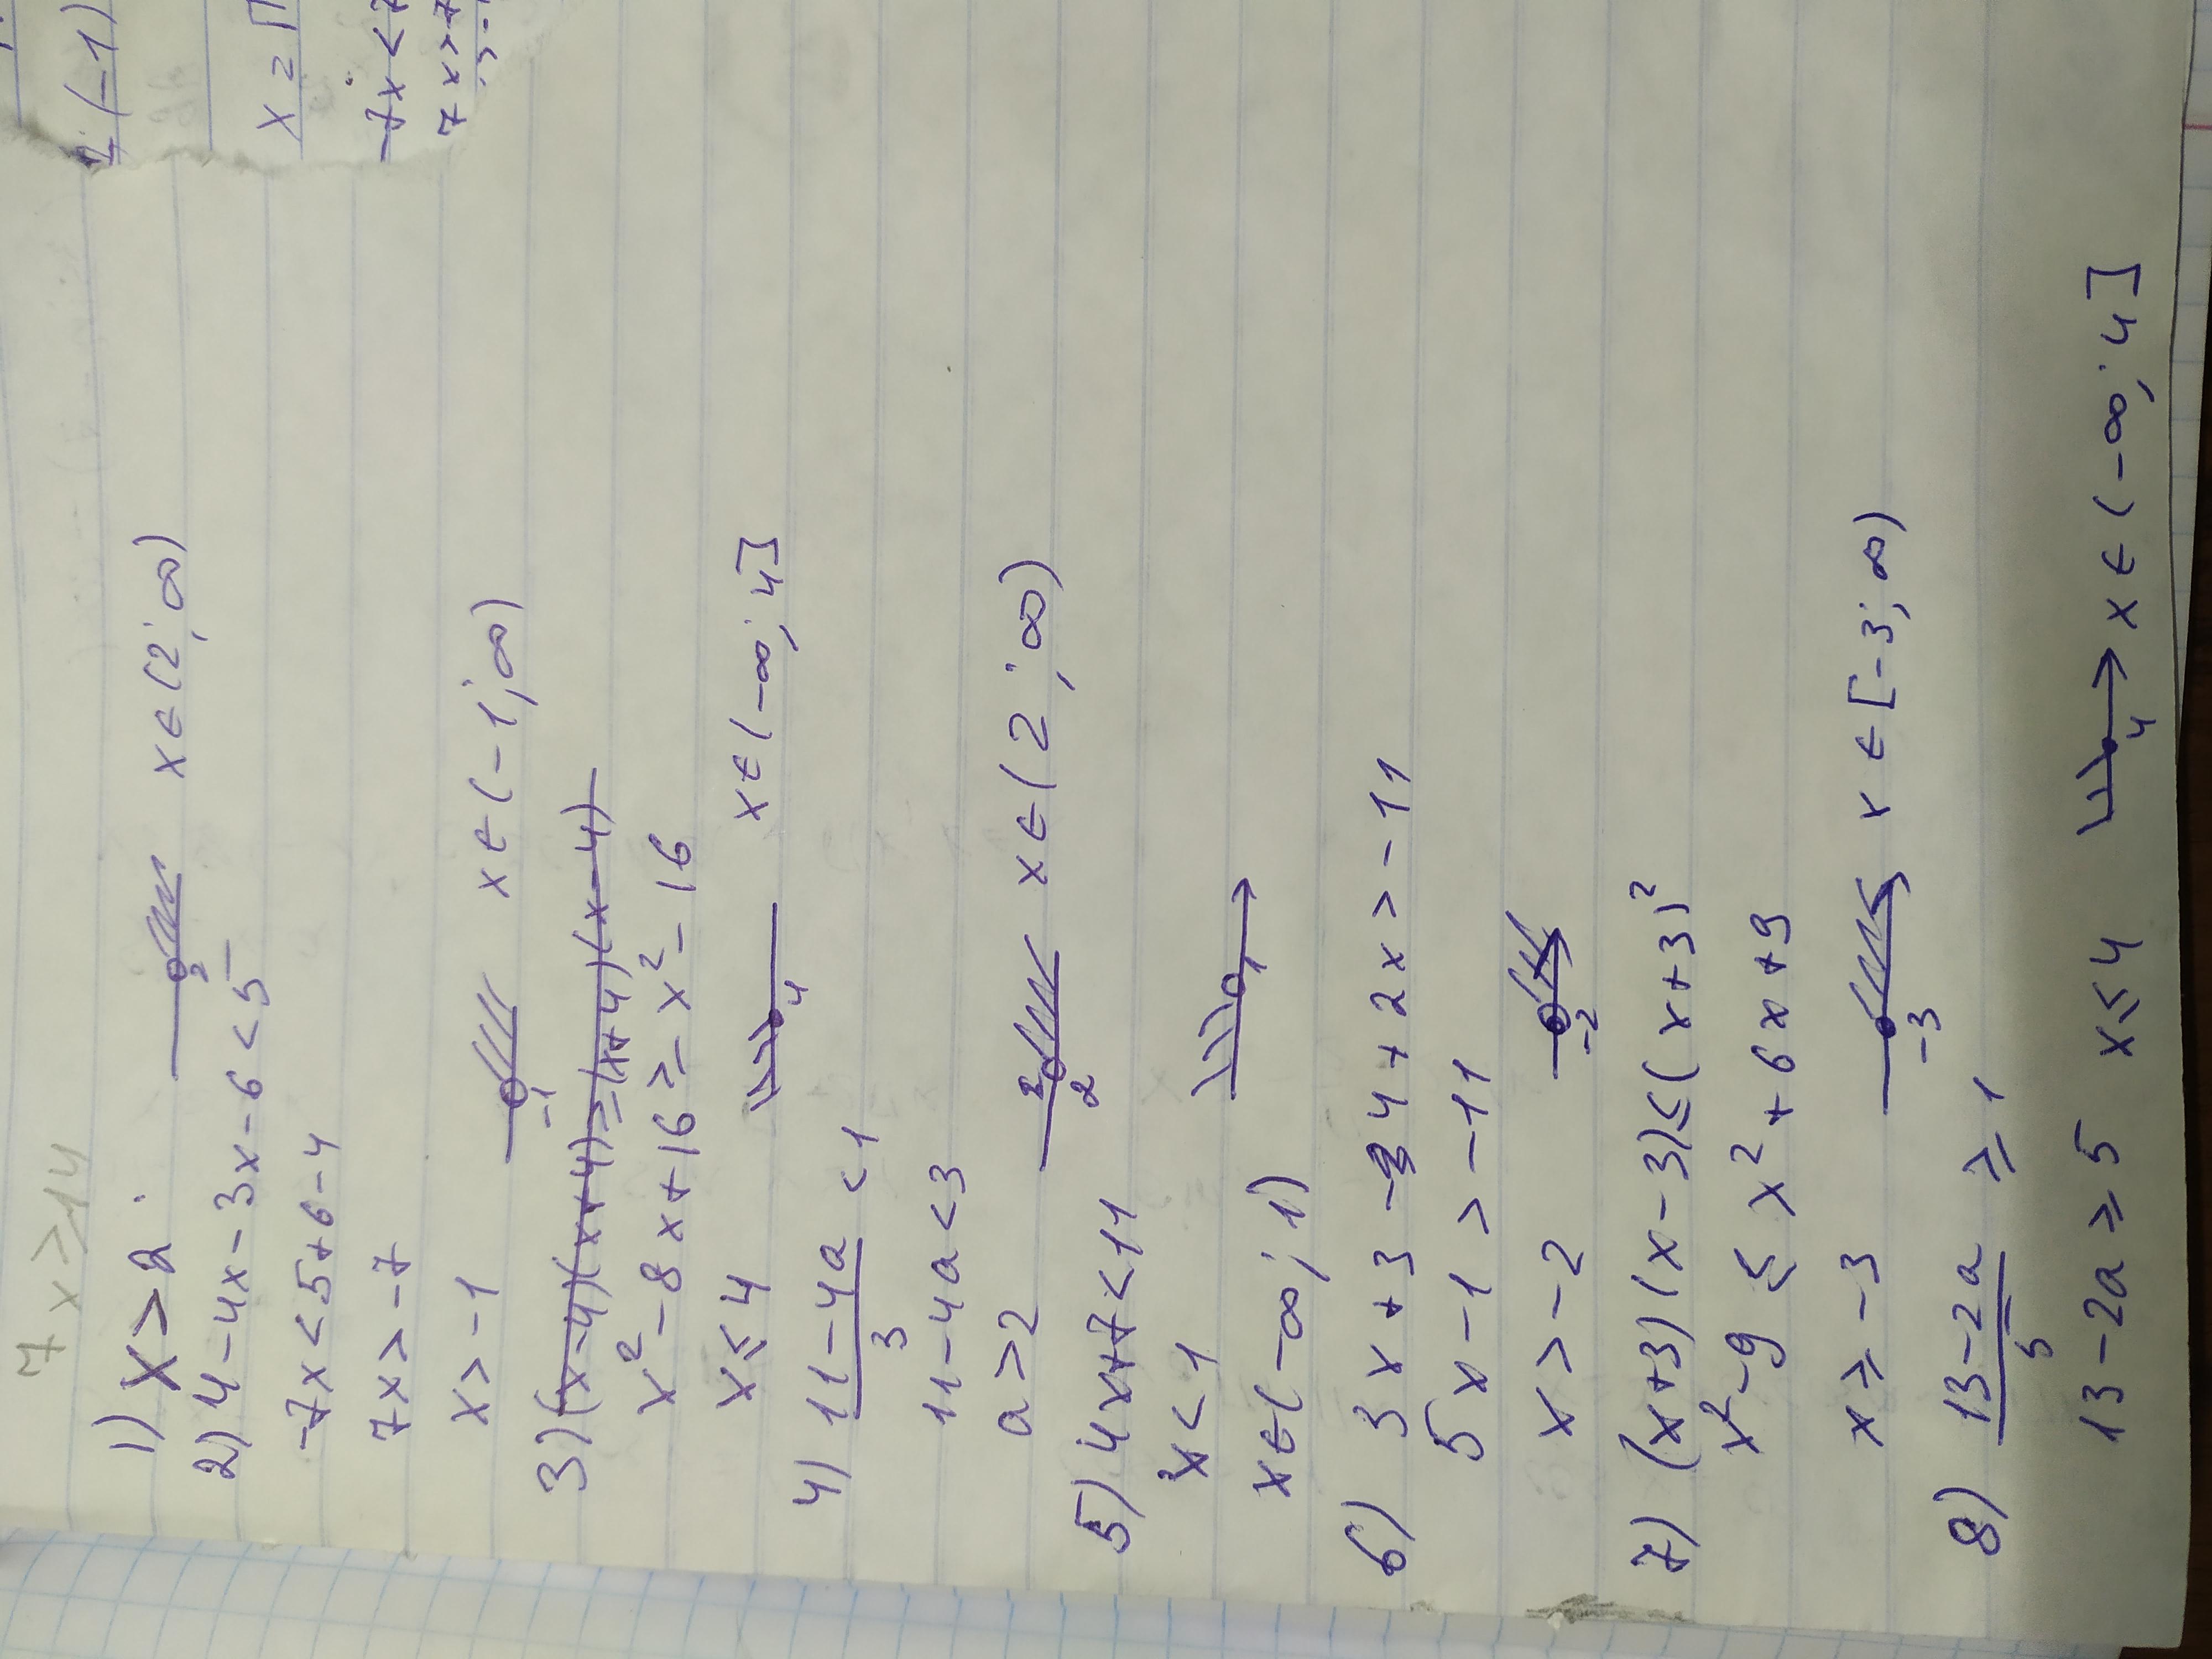 7x ≥ 14
1) x > 2. 2 x ∈ (2; ∞)
2) 4 - 4x - 3x - 6 < 5
-7x < 5 + 6 - 4
7x > -7
x > -1 -1 x ∈ (-1; ∞)
3) (x-4)(x+4) ≥ (x+4)(x-4)
x² - 8x + 16 ≥ x² - 16
x ≤ 4 4 x ∈ (-∞; 4]
4) 11 - 4a / 3 < 1
11 - 4a < 3
a > 2 2 x ∈ (2; ∞)
5) 4x + 7 < 11
x < 1 1
x ∈ (-∞; 1)
6) 3x + 3 - 4 + 2x > -11
5x - 1 > -11
x > -2 -2
7) (x+3)(x-3) ≤ (x+3)²
x² - 9 ≤ x² + 6x + 9
x ≥ -3 -3 x ∈ [-3; ∞)
8) 13 - 2a / 5 ≥ 1
13 - 2a ≥ 5 x ≤ 4 4 x ∈ (-∞; 4]
(-1)
x =
-7x <
7x > -7